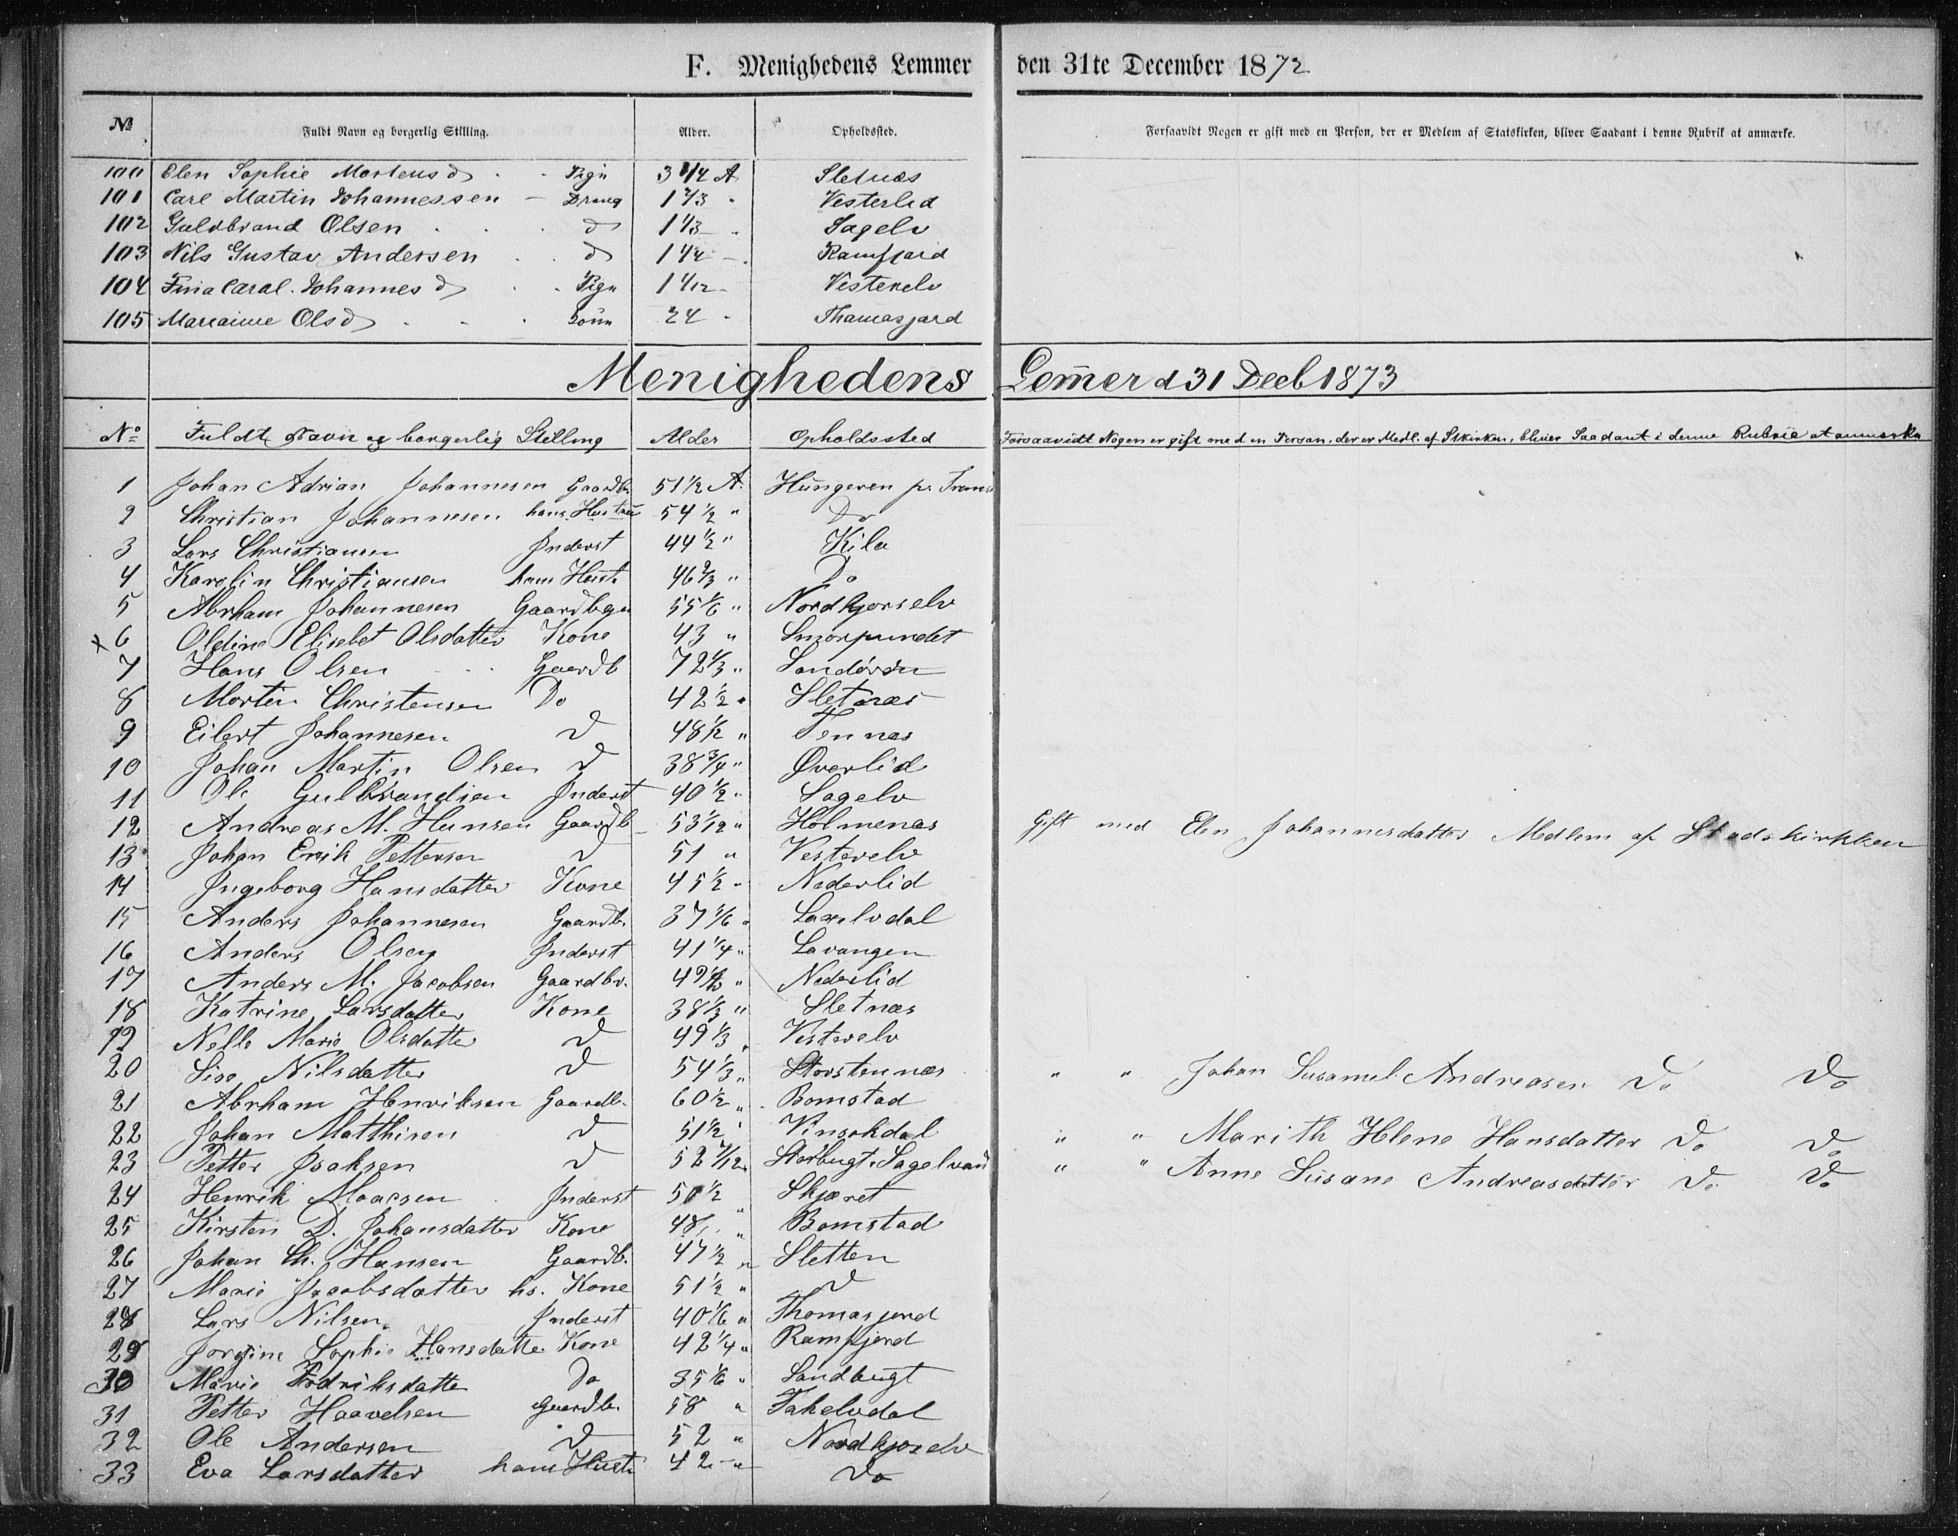 F. Menighedens Lemmer den 31te December 1872
№ Fuldt Navn og borgerlig Stilling. Alder. Opholdssted. Forsaavidt Nogen er gift med en Person, der er Medlem af Statskirken, bliver Saadant i denne Rubrik at anmærke.
100 Elen Sophie Mortensd Pige 3 1/4 A Sletnæs
101 Carl Martin Johannessen Dreng 1 2/3 Vesterlid
102 Guldbrand Olsen d 1 1/3 Sagelv
103 Nils Gustav Andersen d 1 1/4 Ramfjord
104 Johannesd Pige 1 1/12 Vesterelv
105 Olsd 24 Thomasjord
Menighedens Lem̅er d 31 Decb 1873
No Fuldt Navn og borgerlig Stilling Alder Opholdssted Forsaavidt Nogen er gift med en Person, der er Medl. af Stkirken, bliver Saadant i denne Rubrik at anmærke
1 Johan Adrian Johannesen Gaardb. 51 1/2 A. Hungeren pr. Troms
2 Christian Johannesen hans Hustru 54 1/2 " Do
3 Lars Christiansen Inderst 44 1/2 " Kila
4 Karolin Christiansen hans Hust. 46 2/3 " Do
5 Abrham Johannesen Gaardbgr 55 1/6 " Nordkjorselv
x 6 Oldine Elisebet Olsdatter Kone 43 " Smorpundet
7 Hans Olsen Gaardb 72 1/3 " Sandøren
8 Morten Christensen Do 42 1/2 " Sletnæs
9 Eilert Johannesen d 48 1/2 " Tennæs
10 Johan Martin Olsen d 38 3/4 " Øverlid
11 Ole Gulbrandsen Inderst 40 1/2 " Sagelv
12 Andreas M. Hansen Gaardb 53 1/12 " Holmenæs Gift med Elen Johannesdatter Medlem af Stadskirkken
13 Johan Erik Pettersen d 51 " Vesterelv
14 Ingeborg Hansdatter Kone 45 1/2 " Nederlid
15 Anders Johannesen Gaardb. 37 1/6 " Laxelvdal
16 Anders Olsen Inderst 41 1/4 " Lavangen
17 Anders M. Jacobsen Gaardbr. 49 1/2 " Nederlid
18 Katrine Larsdatter Kone 38 1/3 " Sletnæs
19 Nelle Marie Olsdatter d 49 1/3 " Vesterelv
20 Sise Nilsdatter d 54 1/3 " Storstennæs " " Johan Susamel Andreasen Do Do
21 Abrham Henriksen Gaardb. 60 1/2 " Bomstad
22 Johan Matthisen d 51 1/2 " Vinsokdal " " Marith Helene Hansdatter Do Do
23 Petter Isaksen d 52 7/12 " Storbugt. Sagelvand " " Anne Susane Andreasdatter Do Do
24 Henrik Moacsen Inderst 50 1/2 " Skjæret
25 Kirsten D. Johansdatter Kone 48 " Bomstad
26 Johan Ch. Hansen Gaardb. 47 1/2 " Sletten
27 Marie Jacobsdatter hs. Kone 51 1/2 " d
28 Lars Nilsen Inderst 40 1/6 " Thomasjord
29 Jorgine Sophie Hansdatte Kone 42 1/4 " Ramfjord
30 Marie Fredriksdatter Do 35 1/6 " Sandbugt
31 Petter Haavelsen Gaardb. 58 " Takelvdal
32 Ole Andersen d 52 " Nordkjoselv
33 Eva Larsdatter hans Hust. 42 " Do